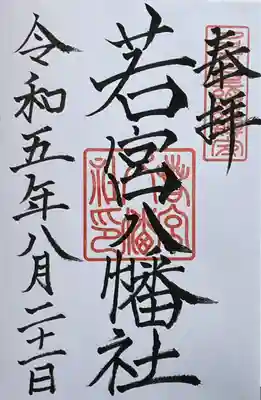 奉拝
若宮八幡社
令和五年八月二十一日